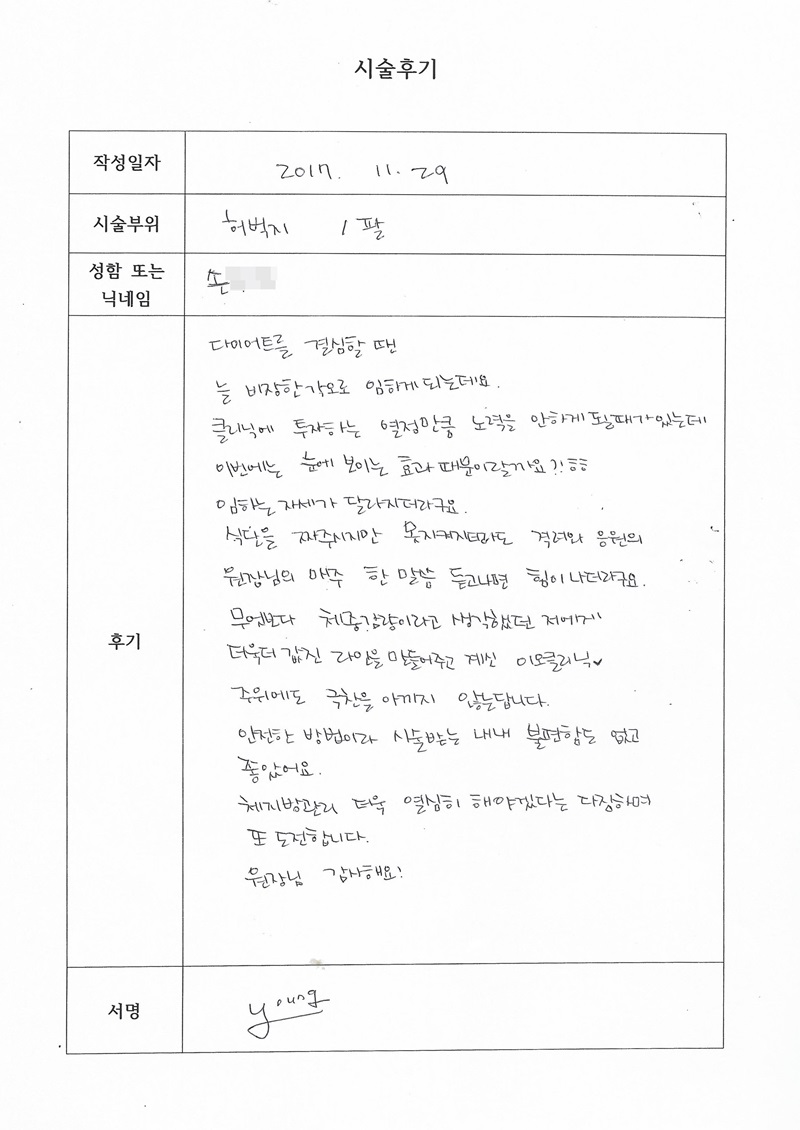 시술후기
작성일자
2017. 11. 29
시술부위
허벅지 / 팔
성함 또는
닉네임
손
후기
다이어트를 결심할 땐
늘 비장한각오로 임하게 되는데요.
클리닉에 투자하는 열정만큼 노력을 안하게 될때가있는데
이번에는 눈에 보이는 효과 때문이랄까요?!ㅎㅎ
임하는 자세가 달라지더라구요.
식단을 짜주시지만 못지켜지더라도 격려와 응원의
원장님의 매주 한 말씀 듣고나면 힘이 나더라구요.
무엇보다 체중감량이라고 생각했던 저에게
더욱더 값진 라인을 만들어주고 계신 이오클리닉♥
주위에도 극찬을 아끼지 않는답니다.
안전한 방법이라 시술받는 내내 불편함도 없고
좋았어요.
체지방관리 더욱 열심히 해야겠다는 다짐하며
또 도전합니다.
원장님 감사해요!
서명
young